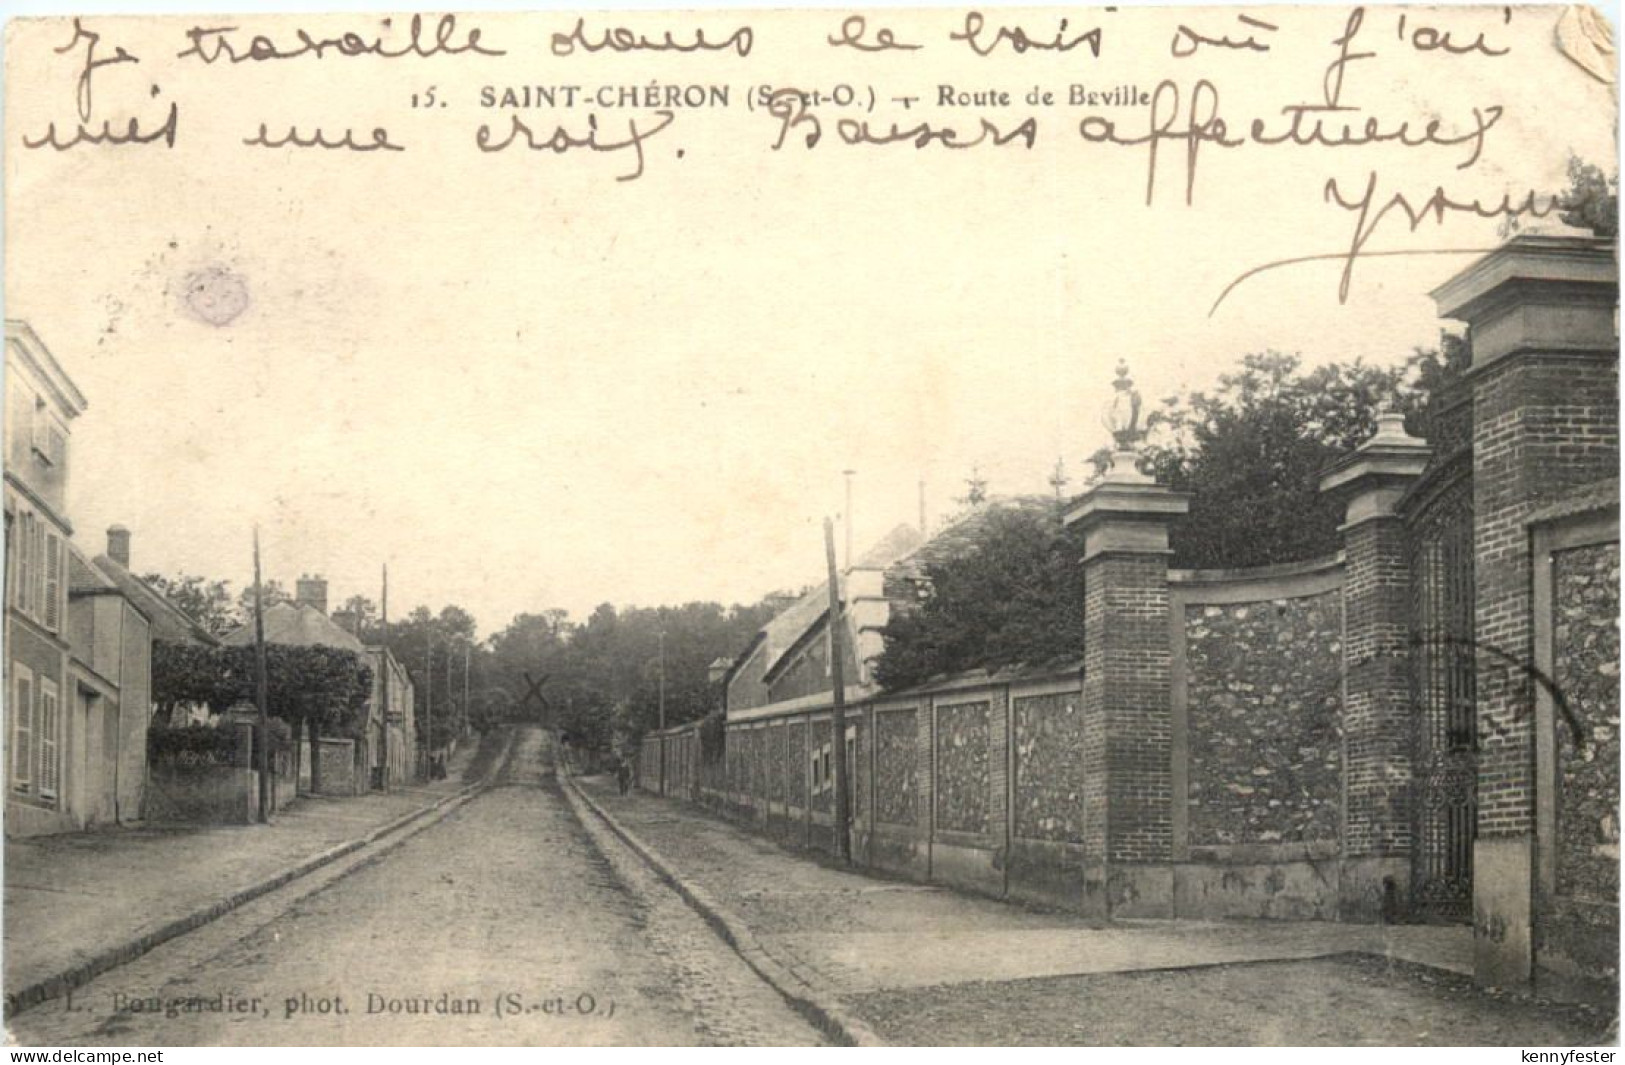 Je travaille dans le bois où j'ai
15. SAINT-CHÉRON (S.-et-O.) — Route de Baville
mis une croix. Baisers affectueux
Yvonne
L. Bougardier, phot. Dourdan (S.-et-O.)
www.delcampe.net
kennyfester